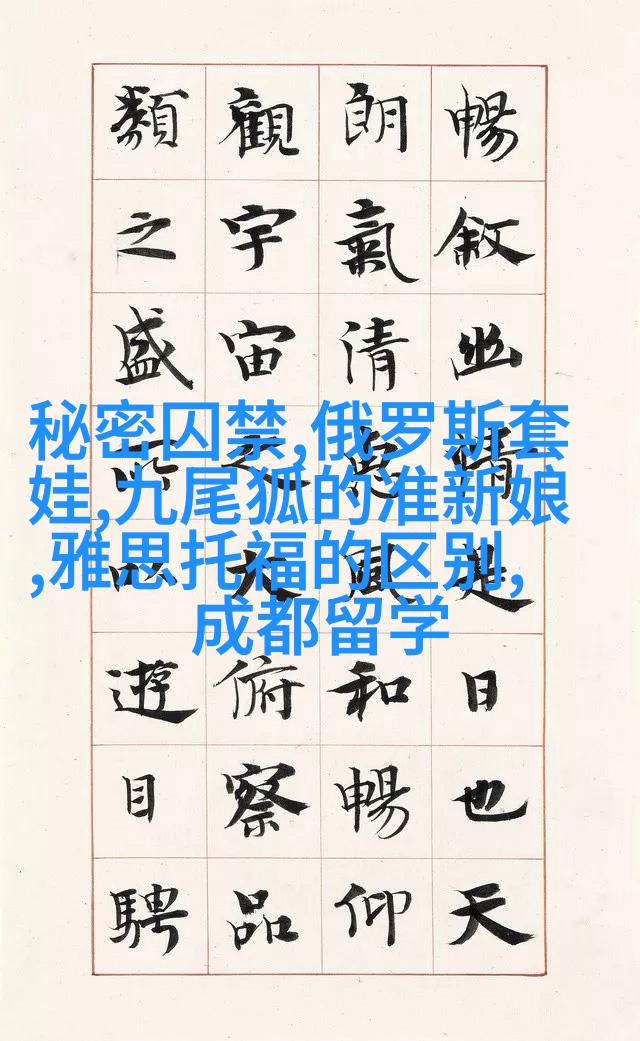 暢敘幽情是日也天
朗氣清惠風和暢仰
觀宇宙之大俯察品
類之盛所以遊目騁
秘密囚禁,俄罗斯套
娃,九尾狐的准新娘
,雅思托福的区别,
成都留学